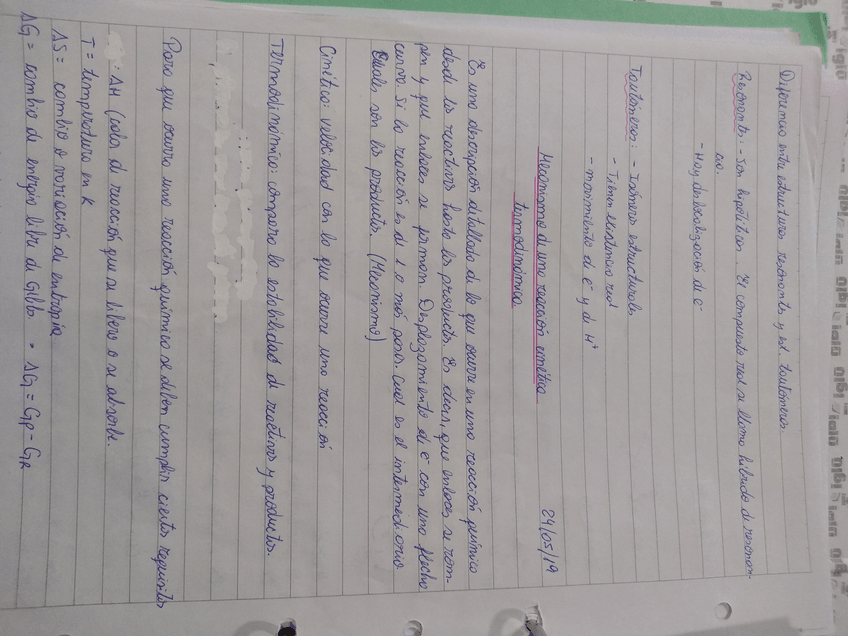 Diferencias entre estructuras resonantes y est. tautómeros.
Resonantes: - Son hipotéticas. El compuesto real se llama híbrido de resonan-
cia.
- Hay deslocalización de e⁻
Tautómeros: - Isómeros estructurales
- Tienen existencia real
- movimiento de e⁻ y de H⁺
24/05/19
Mecanismo de una reacción cinética
termodinámica
Es una descripción detallada de lo que ocurre en una reacción química
desde los reactivos hasta los productos. Es decir, que enlaces se rom-
pen y que enlaces se forman. Desplazamiento de e⁻ con una flecha
curva. Si la reacción es de 1 o más pasos. Cual es el intermediario
Cuales son los productos. (Mecanismo)
Cinética: velocidad con la que ocurre una reacción
Termodinámica: compara la estabilidad de reactivos y productos.
Para que ocurra una reacción química se deben cumplir ciertos requisitos
ΔH (calor de reacción que se libera o se absorbe.
T = temperatura en K
ΔS = cambio o variación de entropía
ΔG = cambio de energía libre de Gibbs = ΔG = Gp - GR